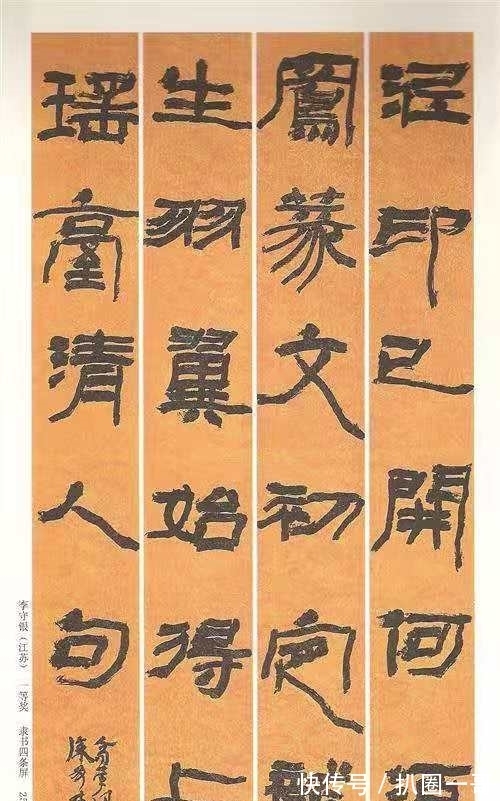 泥印已開何
鳳篆文初定
生羽翼始得上
瑶臺清人句
李守银（江苏） 一等奖 隶书四条屏
快传号／扒圈一